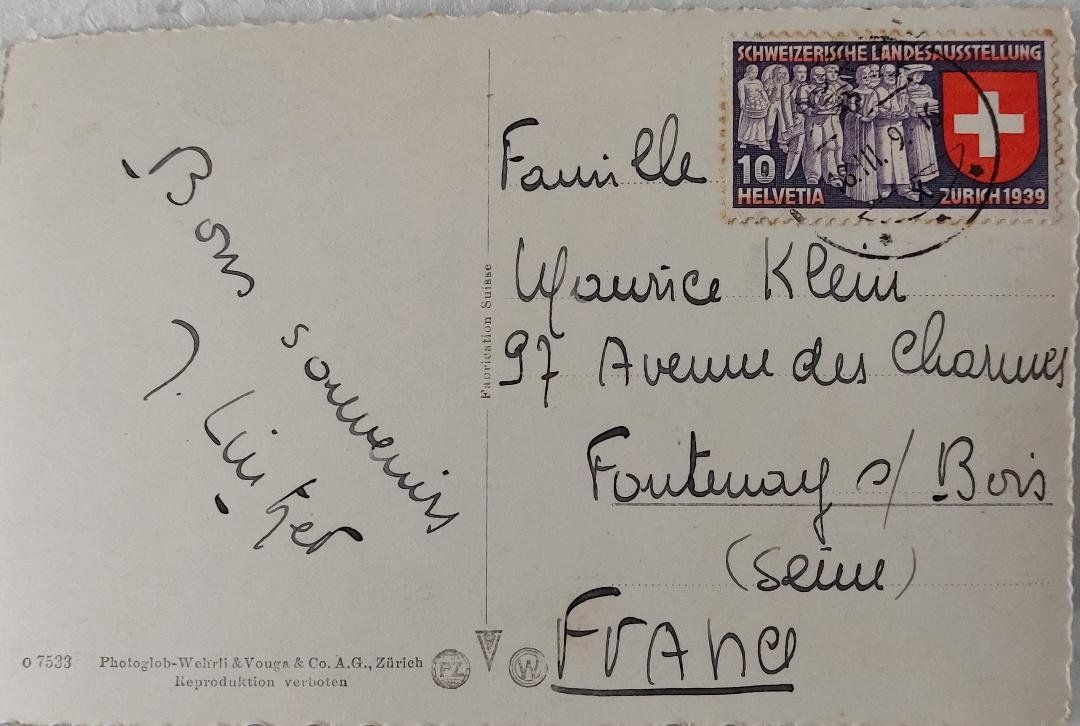 Bons
souvenirs
SCHWEIZERISCHE LANDESAUSSTELLUNG
10
HELVETIA
ZÜRICH 1939
Famille
Maurice Klein
97 Avenue des Charmes
Fontenay s/ Bois
(Seine)
France
Fabrication Suisse
O 7533 Photoglob-Wehrli & Vouga & Co. A.G., Zürich
Reproduktion verboten
PZ
W